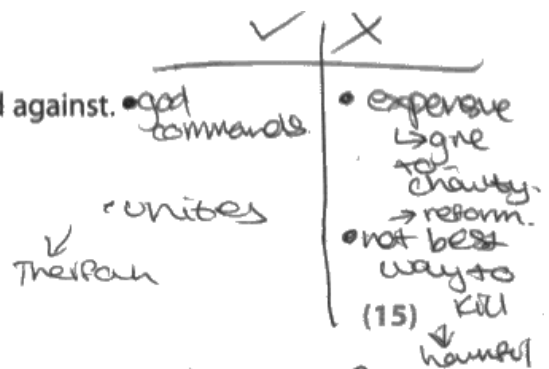 ✓ X
l against. • god
commands
• unites
• expensive
↳ give
to
charity.
→ reform.
• not best
way to
kill
(15)
harmful